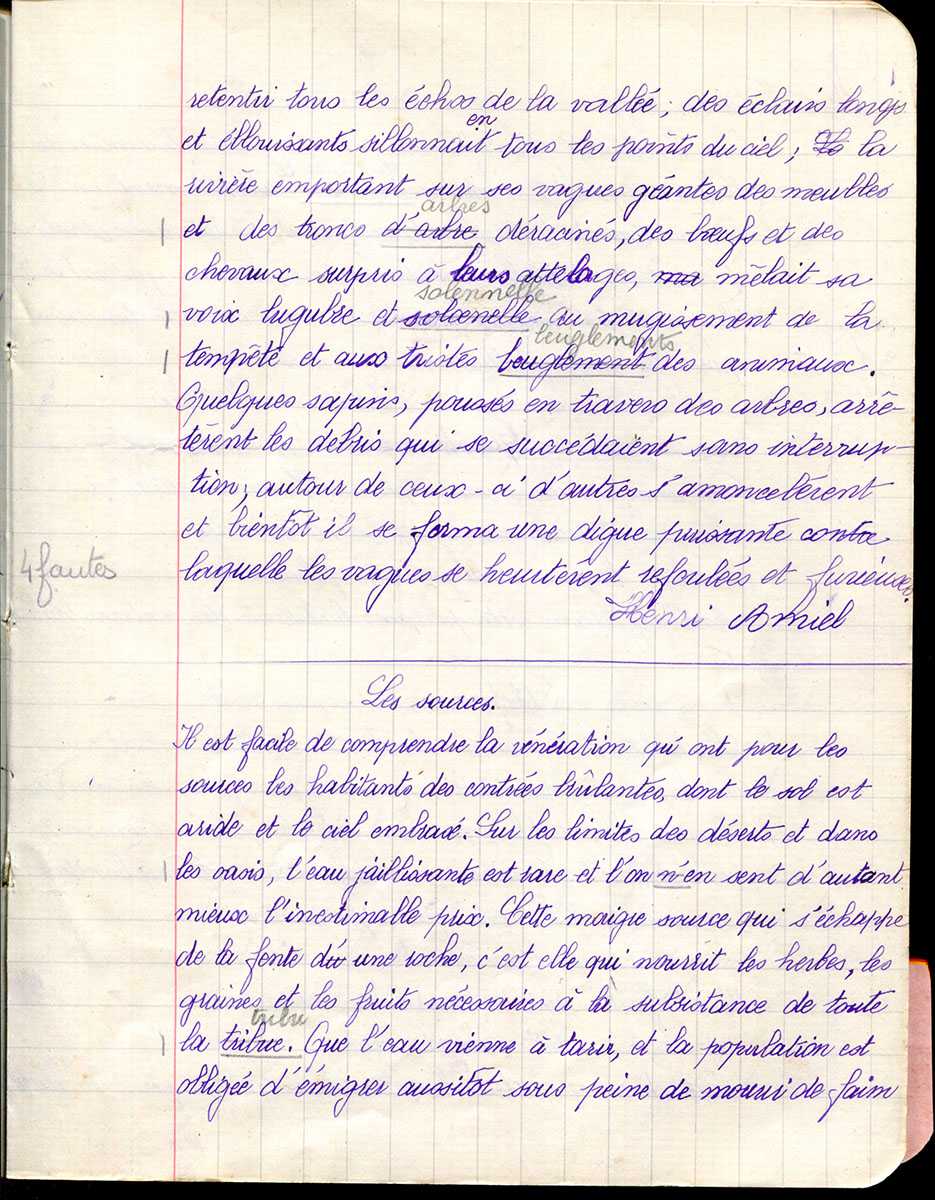 retentir tous les échos de la vallée; des éclairs longs
en
et éblouissants sillonnait tous les points du ciel; la
rivière emportant sur ses vagues géantes des meubles
arbres
et des troncs d'arbre déracinés, des bœufs et des
chevaux surpris à leurs attelages, ma mêlait sa
solennelle
voix lugubre et solœnelle au mugissement de la
beuglements
tempête et aux tristes beuglement des animaux.
Quelques sapins, poussés en travers des arbres, arrê-
tèrent les debris qui se succédaient sans interrup-
tion; autour de ceux-ci d'autres s'amoncelèrent
et bientôt il se forma une digue puissante contre
4 fautes
laquelle les vagues se heurtèrent refoulées et furieuses.
Henri Amiel
Les sources.
Il est facile de comprendre la vénération qu'ont pour les
sources les habitants des contrées brûlantes, dont le sol est
aride et le ciel embrasé. Sur les limites des déserts et dans
les oasis, l'eau jaillissante est rare et l'on n'en sent d'autant
mieux l'inestimable prix. Cette maigre source qui s'échappe
de la fente d'une roche, c'est elle qui nourrit les herbes, les
graines et les fruits nécessaires à la subsistance de toute
tribu
la tribue. Que l'eau vienne à tarir, et la population est
obligée d'émigrer aussitôt sous peine de mourir de faim